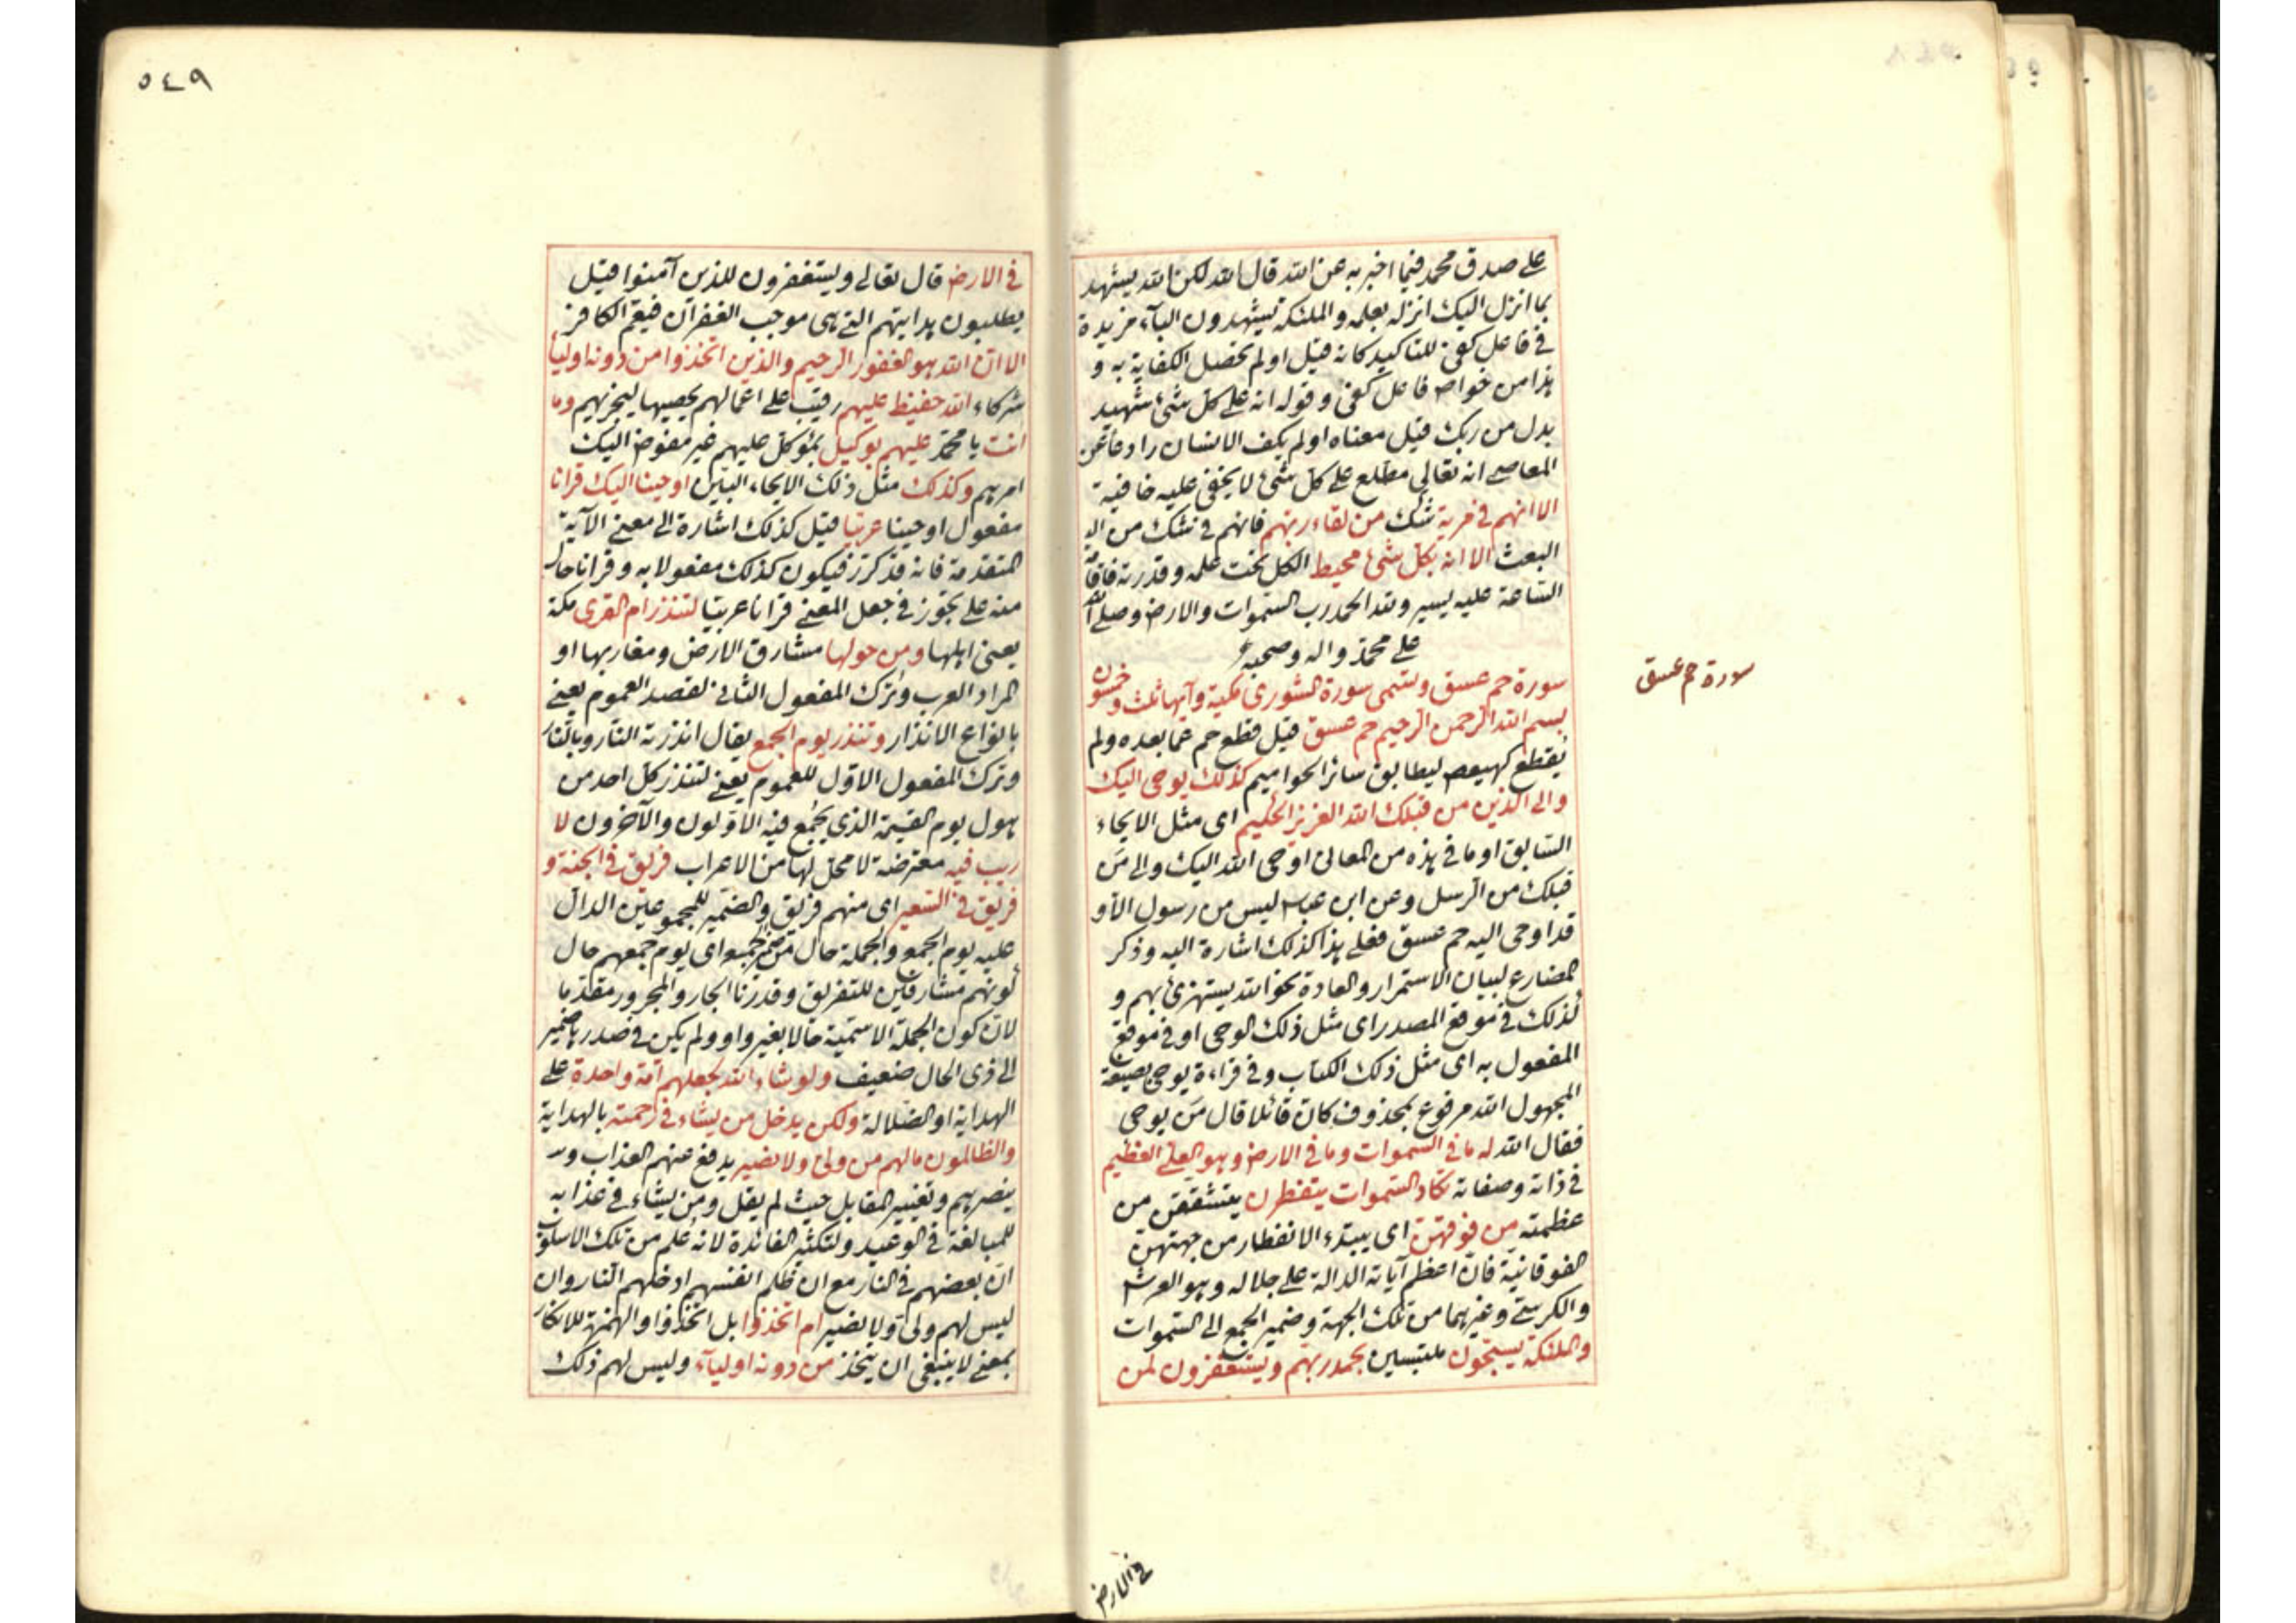 على صدق محمد فيما اخبر به عن الله قال الله لكن الله يشهد
بما انزل اليك انزله بعلمه والملئكة يشهدون الباء مزيدة
فى فاعل كفى للتاكيد كانه قيل اولم تحصل الكفاية به و
هذا من خواص فاعل كفى وقوله انه على كل شئ شهيد
بدل من ربك قيل معناه اولم يكف الانسان رادعا عن
المعاصى انه تعالى مطلع على كل شئ لا يخفى عليه خافية
الا انهم فى مرية شك من لقاء ربهم فانهم فى شك من
البعث الا انه بكل شئ محيط الكل تحت علمه وقدرته فاقامة
الساعة عليه يسير ولله الحمد رب السموات والارض وصلى الله
على محمد واله وصحبه
سورة حم عسق وتسمى سورة الشورى مكية وآيها ثلث وخمسون
سورة حم عسق
بسم الله الرحمن الرحيم حم عسق قيل قطع حم عما بعده ولم
يقطع كهيعص ليطابق سائر الحواميم كذلك يوحى اليك
والى الذين من قبلك الله العزيز الحكيم اى مثل الايحاء
السابق او ما فى هذه من المعانى اوحى الله اليك والى من
قبلك من الرسل وعن ابن عباس ليس من رسول الا و
قد اوحى اليه حم عسق فعلى هذا كذلك اشارة اليه وذكر
المضارع لبيان الاستمرار والعادة نحو الله يستهزئ بهم و
كذلك فى موقع المصدر اى مثل ذلك الوحى او فى موقع
المفعول به اى مثل ذلك الكتاب وفى قراءة يوحى بصيغة
المجهول الله مرفوع بمحذوف كان قائلا قال من يوحى
فقال الله له ما فى السموات وما فى الارض وهو العلى العظيم
فى ذاته وصفاته تكاد السموات يتفطرن يتشققن من
عظمته من فوقهن اى يبتدء الانفطار من جهتهن
الفوقانية فان اعظم آياته الدالة على جلاله وهو العرش
والكرسى وغيرهما من تلك الجهة وضمير الجمع الى السموات
والملئكة يسبحون ملتبسين بحمد ربهم ويستغفرون لمن
فى الارض
٥٤٩
فى الارض قال تعالى ويستغفرون للذين آمنوا قيل
يطلبون هدايتهم التى هى موجب الغفران فيعم الكافر
الا ان الله هو الغفور الرحيم والذين اتخذوا من دونه اوليا
شركاء الله حفيظ عليهم رقيب على اعمالهم يحصيها ليجزيهم وما
انت يا محمد عليهم بوكيل بموكل عليهم غير مفوض اليك
امرهم وكذلك مثل ذلك الايحاء البين اوحينا اليك قرانا
مفعول اوحينا عربيا قيل كذلك اشارة الى معنى الآية
المتقدمة فانه قد كرر فيكون كذلك مفعولا به وقرانا حال
منه على تجوز فى جعل المعنى قرانا عربيا لتنذر ام القرى مكة
يعنى اهلها ومن حولها مشارق الارض ومغاربها او
المراد العرب وترك المفعول الثانى لقصد العموم يعنى
بانواع الانذار وتنذر يوم الجمع يقال انذرته النار وبالنار
وترك المفعول الاول للعموم يعنى لتنذر كل احد من
هول يوم القيمة الذى يجمع فيه الاولون والآخرون لا
ريب فيه معترضة لا محل لها من الاعراب فريق فى الجنة و
فريق فى السعير اى منهم فريق والضمير للمجموعين الدال
عليه يوم الجمع والجملة حال من اى يوم جمعهم حال
كونهم مشارفين للتفريق وقدرنا الجار والمجرور مقدما
لان كون الجملة الاسمية حالا بغير واو ولم يكن فى صدرها ضمير
الى ذى الحال ضعيف ولو شاء الله لجعلهم امة واحدة على
الهداية او الضلالة ولكن يدخل من يشاء فى رحمته بالهداية
والظالمون مالهم من ولى ولا نصير يدفع عنهم العذاب و
ينصرهم وتغيير المقابل حيث لم يقل ومن يشاء فى عذابه
للمبالغة فى الوعيد ولتكثير الفائدة لانه علم من تلك الاسلوب
ان بعضهم فى النار مع ان ظلم انفسهم ادخلهم النار وان
ليس لهم ولى ولا نصير ام اتخذوا بل اتخذوا والهمزة للانكار
بمعنى لا ينبغى ان يتخذ من دونه اولياء وليس لهم ذلك